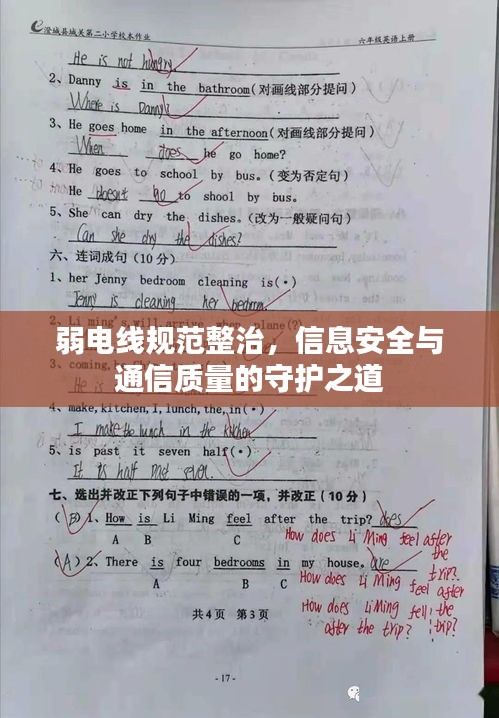 澄城县城关第二小学校本作业 六年级英语上册
He is not hungry.
2、Danny is in the bathroom(对画线部分提问)
Where is Danny?
3、He goes home in the afternoon(对画线部分提问)
When does he go home?
4、He goes to school by bus.(变为否定句)
He doesnt go to shool by bus.
5、She can dry the dishes.(改为一般疑问句)
Can she dry the dishes?
六、连词成句(10分)
1、her Jenny bedroom cleaning is(·)
Jenny is cleaning her bedroom.
弱电线规范整治，信息安全与
通信质量的守护之道
3、coming,
4、make,kitchen,I,lunch,the,in(·)
I make the lunch in the kitchen
5、is past it seven half(·)
It is half past seven.
七、选出并改正下列句子中错误的一项，并改正(10分)
(B)1、How is Li Ming feel after the trip? does
A B C
How does Li Ming feel after
the
trip?
(A)2、There is four bedrooms in my house. are
A B C
How does Li Ming feel after
the trip?
How does Li Ming fell
after the trip?
共4页 第3页
-17-